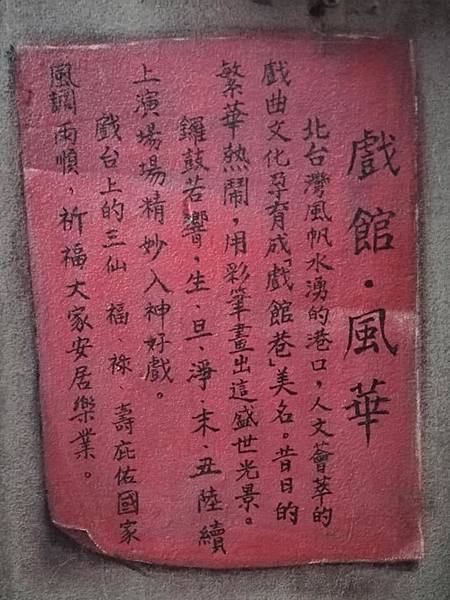 戲館·風華
北台灣風帆水湧的港口，人文薈萃的
戲曲文化孕育成「戲館巷」美名。昔日的
繁華熱鬧，用彩筆畫出這盛世光景。
鑼鼓若響，生、旦、淨、末、丑陸續
上演場場精妙入神好戲。
戲台上的三仙 福、祿、壽庇佑國家
風調雨順，祈福大家安居樂業。